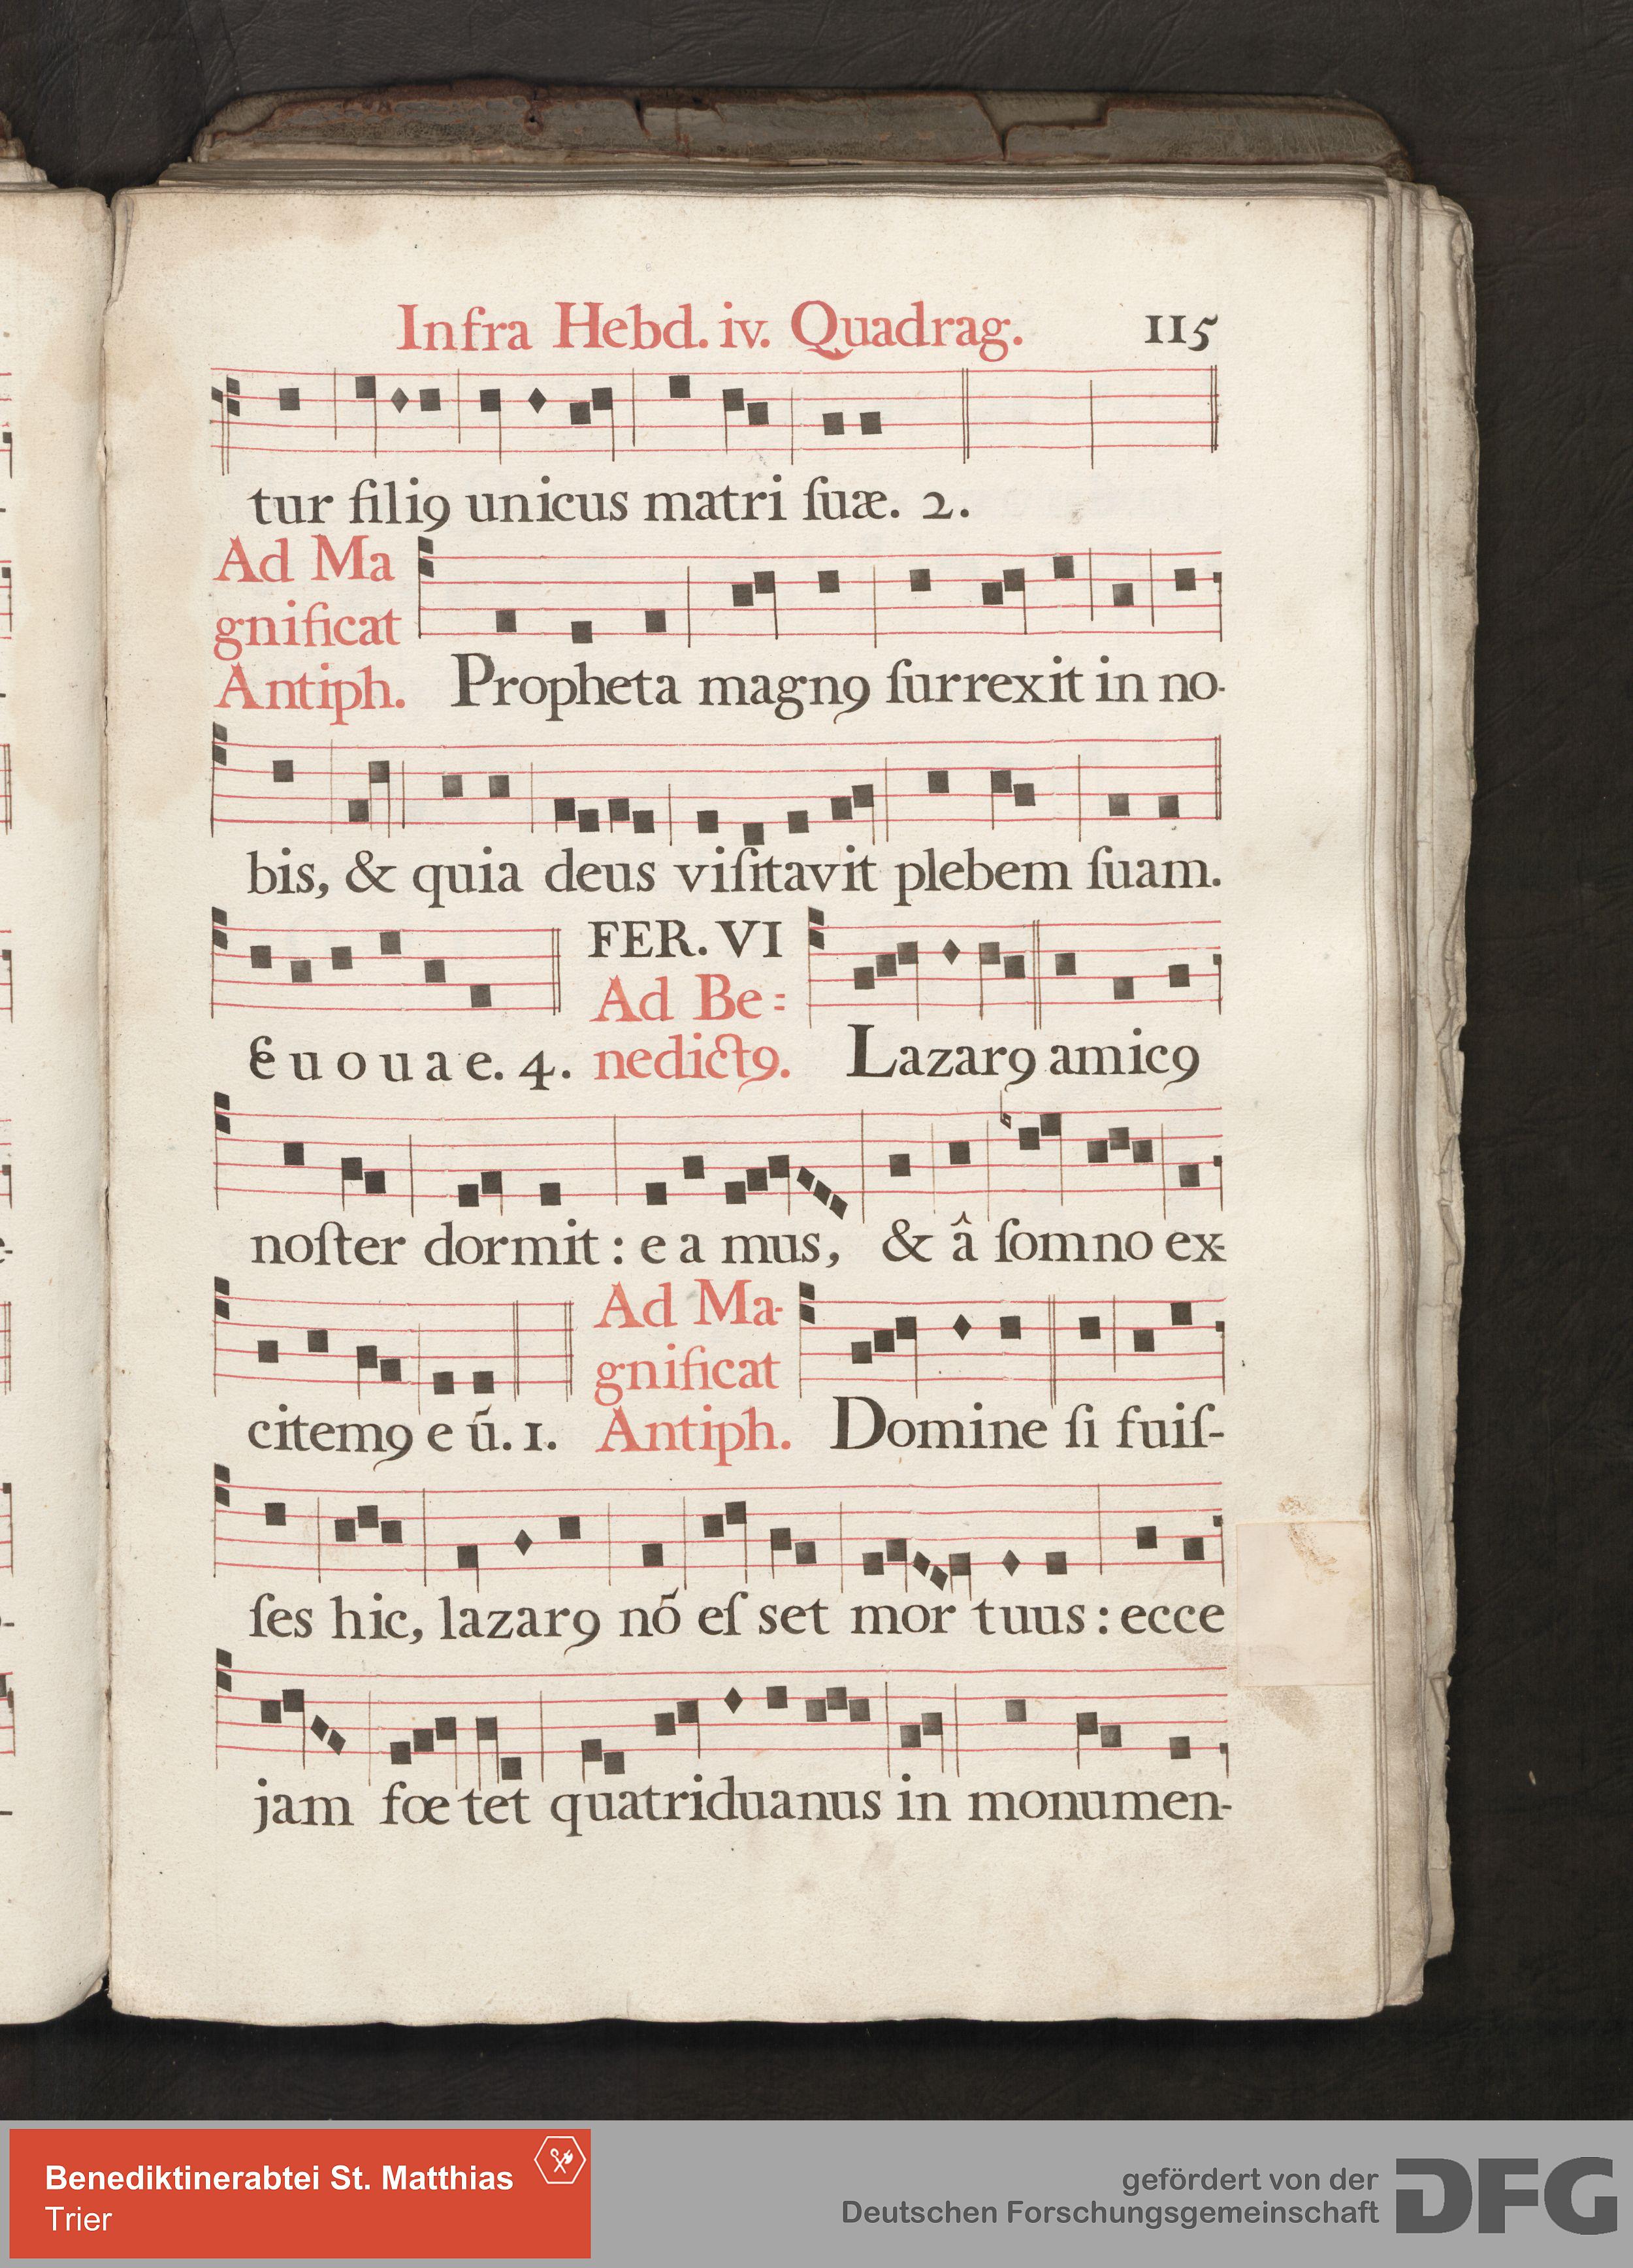 Infra Hebd. iv. Quadrag. 115
tur filiꝰ unicus matri ſuæ. 2.
Ad Ma
gnificat
Antiph. Propheta magnꝰ ſurrexit in no-
bis, & quia deus viſitavit plebem ſuam.
E u o u a e. 4. FER. VI
Ad Be=
nedictꝰ. Lazarꝰ amicꝰ
noſter dormit : e a mus, & â ſomno ex-
citemꝰ e ũ. 1. Ad Ma-
gnificat
Antiph. Domine ſi fuiſ-
ſes hic, lazarꝰ nõ eſ set mor tuus : ecce
jam fœ tet quatriduanus in monumen-
Benediktinerabtei St. Matthias
Trier
gefördert von der
Deutschen Forschungsgemeinschaft
DFG